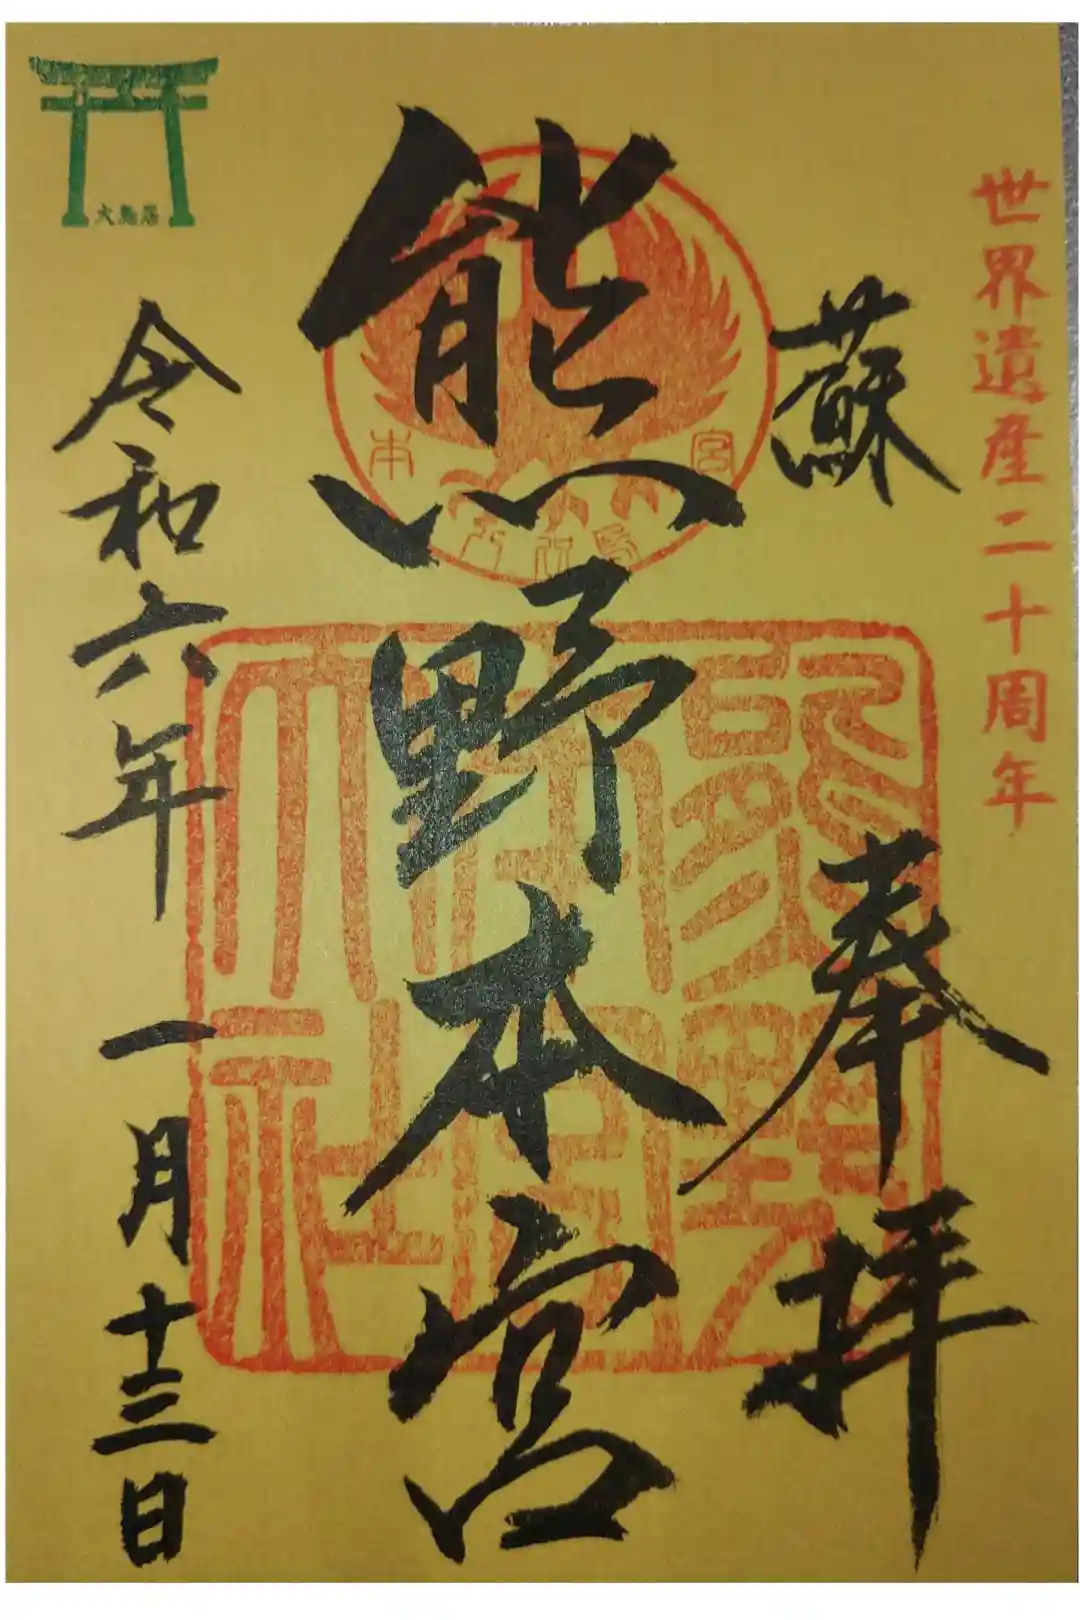 世界遺産二十周年
蘇
奉拝
熊野本宮
本宮
熊野本宮大社
令和六年一月十三日
大鳥居